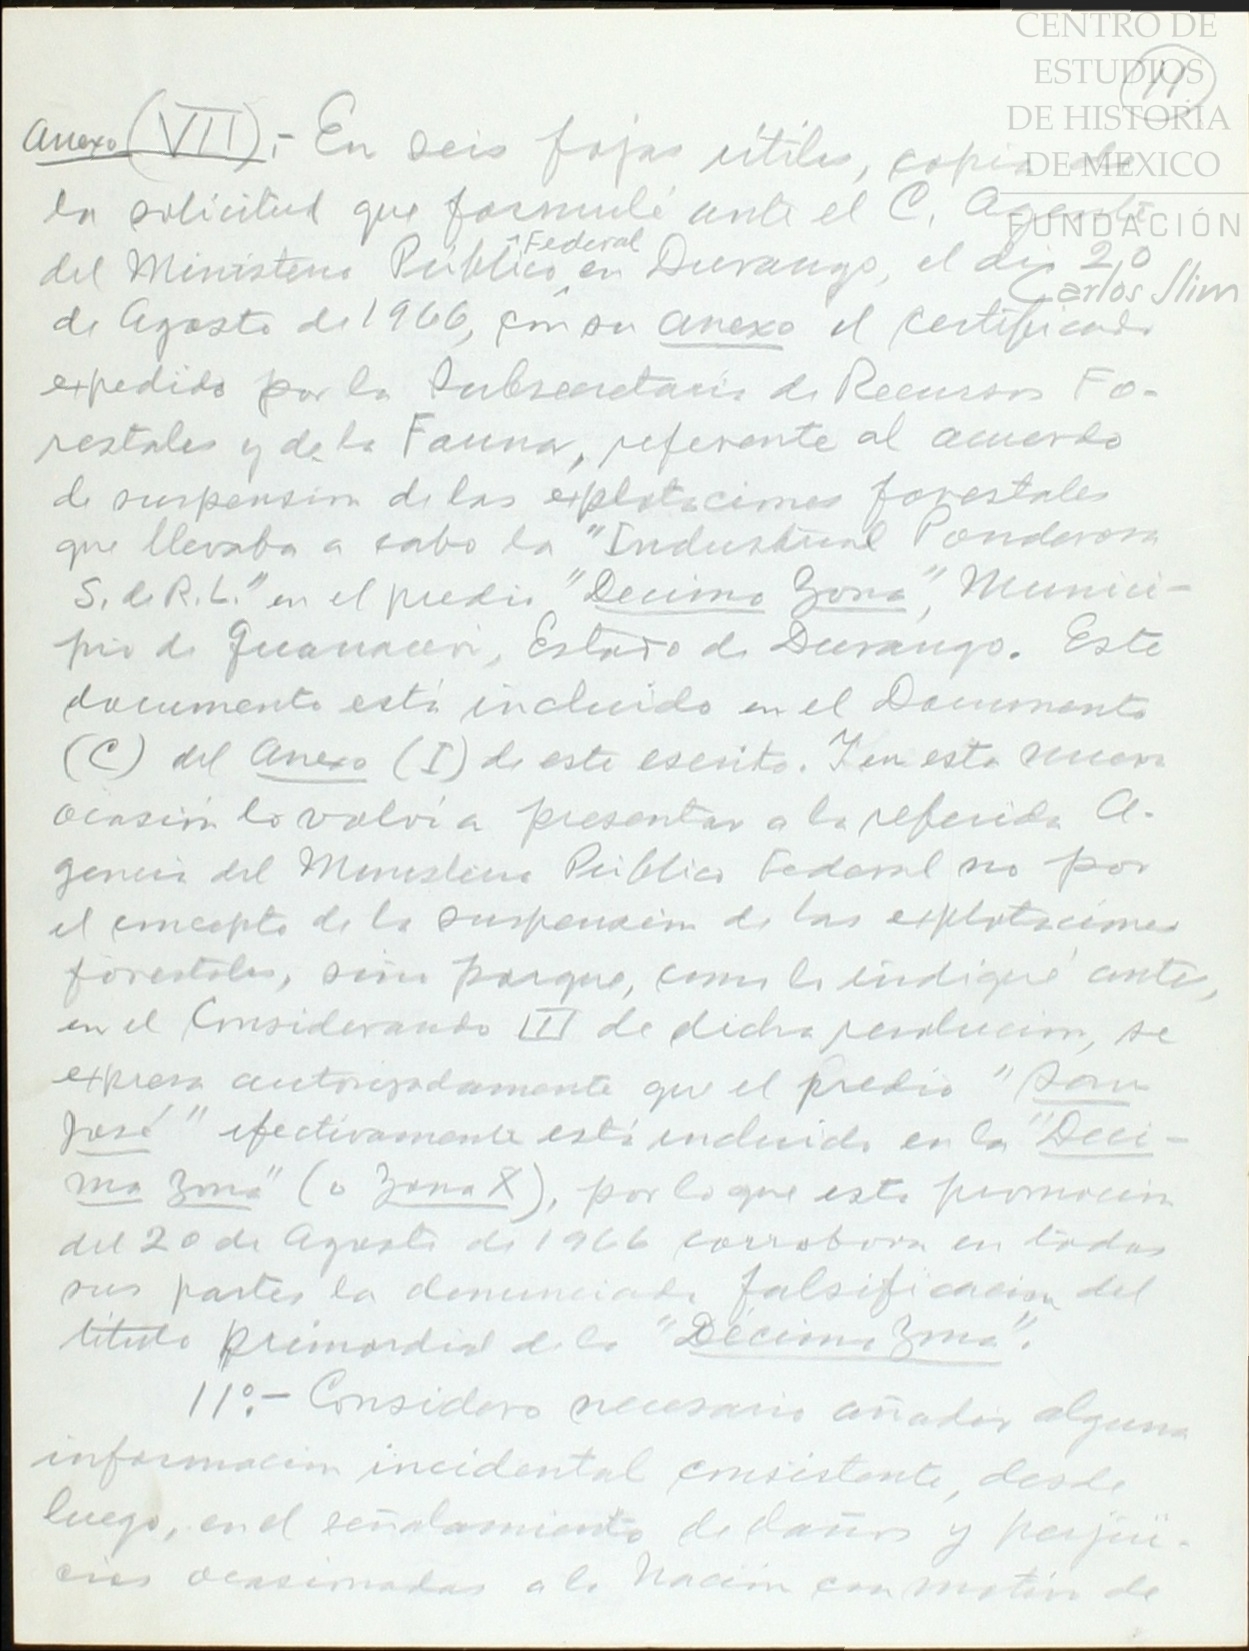 CENTRO DE
ESTUDIOS
DE HISTORIA
DE MEXICO
FUNDACIÓN
Carlos Slim
11.
Anexo (VII).- En seis fojas útiles, copia de
la solicitud que formulé ante el C. Agente
del Ministerio Público Federal en Durango, el día 20
de Agosto de 1966, con su anexo el certificado
expedido por la Subsecretaría de Recursos Fo-
restales y de la Fauna, referente al acuerdo
de suspensión de las explotaciones forestales
que llevaba a cabo la "Industrial Ponderosa
S. de R.L." en el predio "Decima Zona", Munici-
pio de Guanaceví, Estado de Durango. Este
documento está incluido en el Documento
(C) del Anexo (I) de este escrito. Y en esta nueva
ocasión lo volví a presentar a la referida A-
gencia del Ministerio Público Federal no por
el concepto de la suspensión de las explotaciones
forestales, sino porque, como lo indiqué antes,
en el Considerando III de dicha resolución, se
expresa autorizadamente que el predio "San
José" efectivamente está incluido en la "Deci-
ma Zona" (o Zona X), por lo que esta promoción
del 20 de Agosto de 1966 corrobora en todas
sus partes la denunciada falsificación del
título primordial de la "Décima Zona".
11º.- Considero necesario añadir alguna
información incidental consistente, desde
luego, en el señalamiento de daños y perjui-
cios ocasionados a la Nación con motivo de